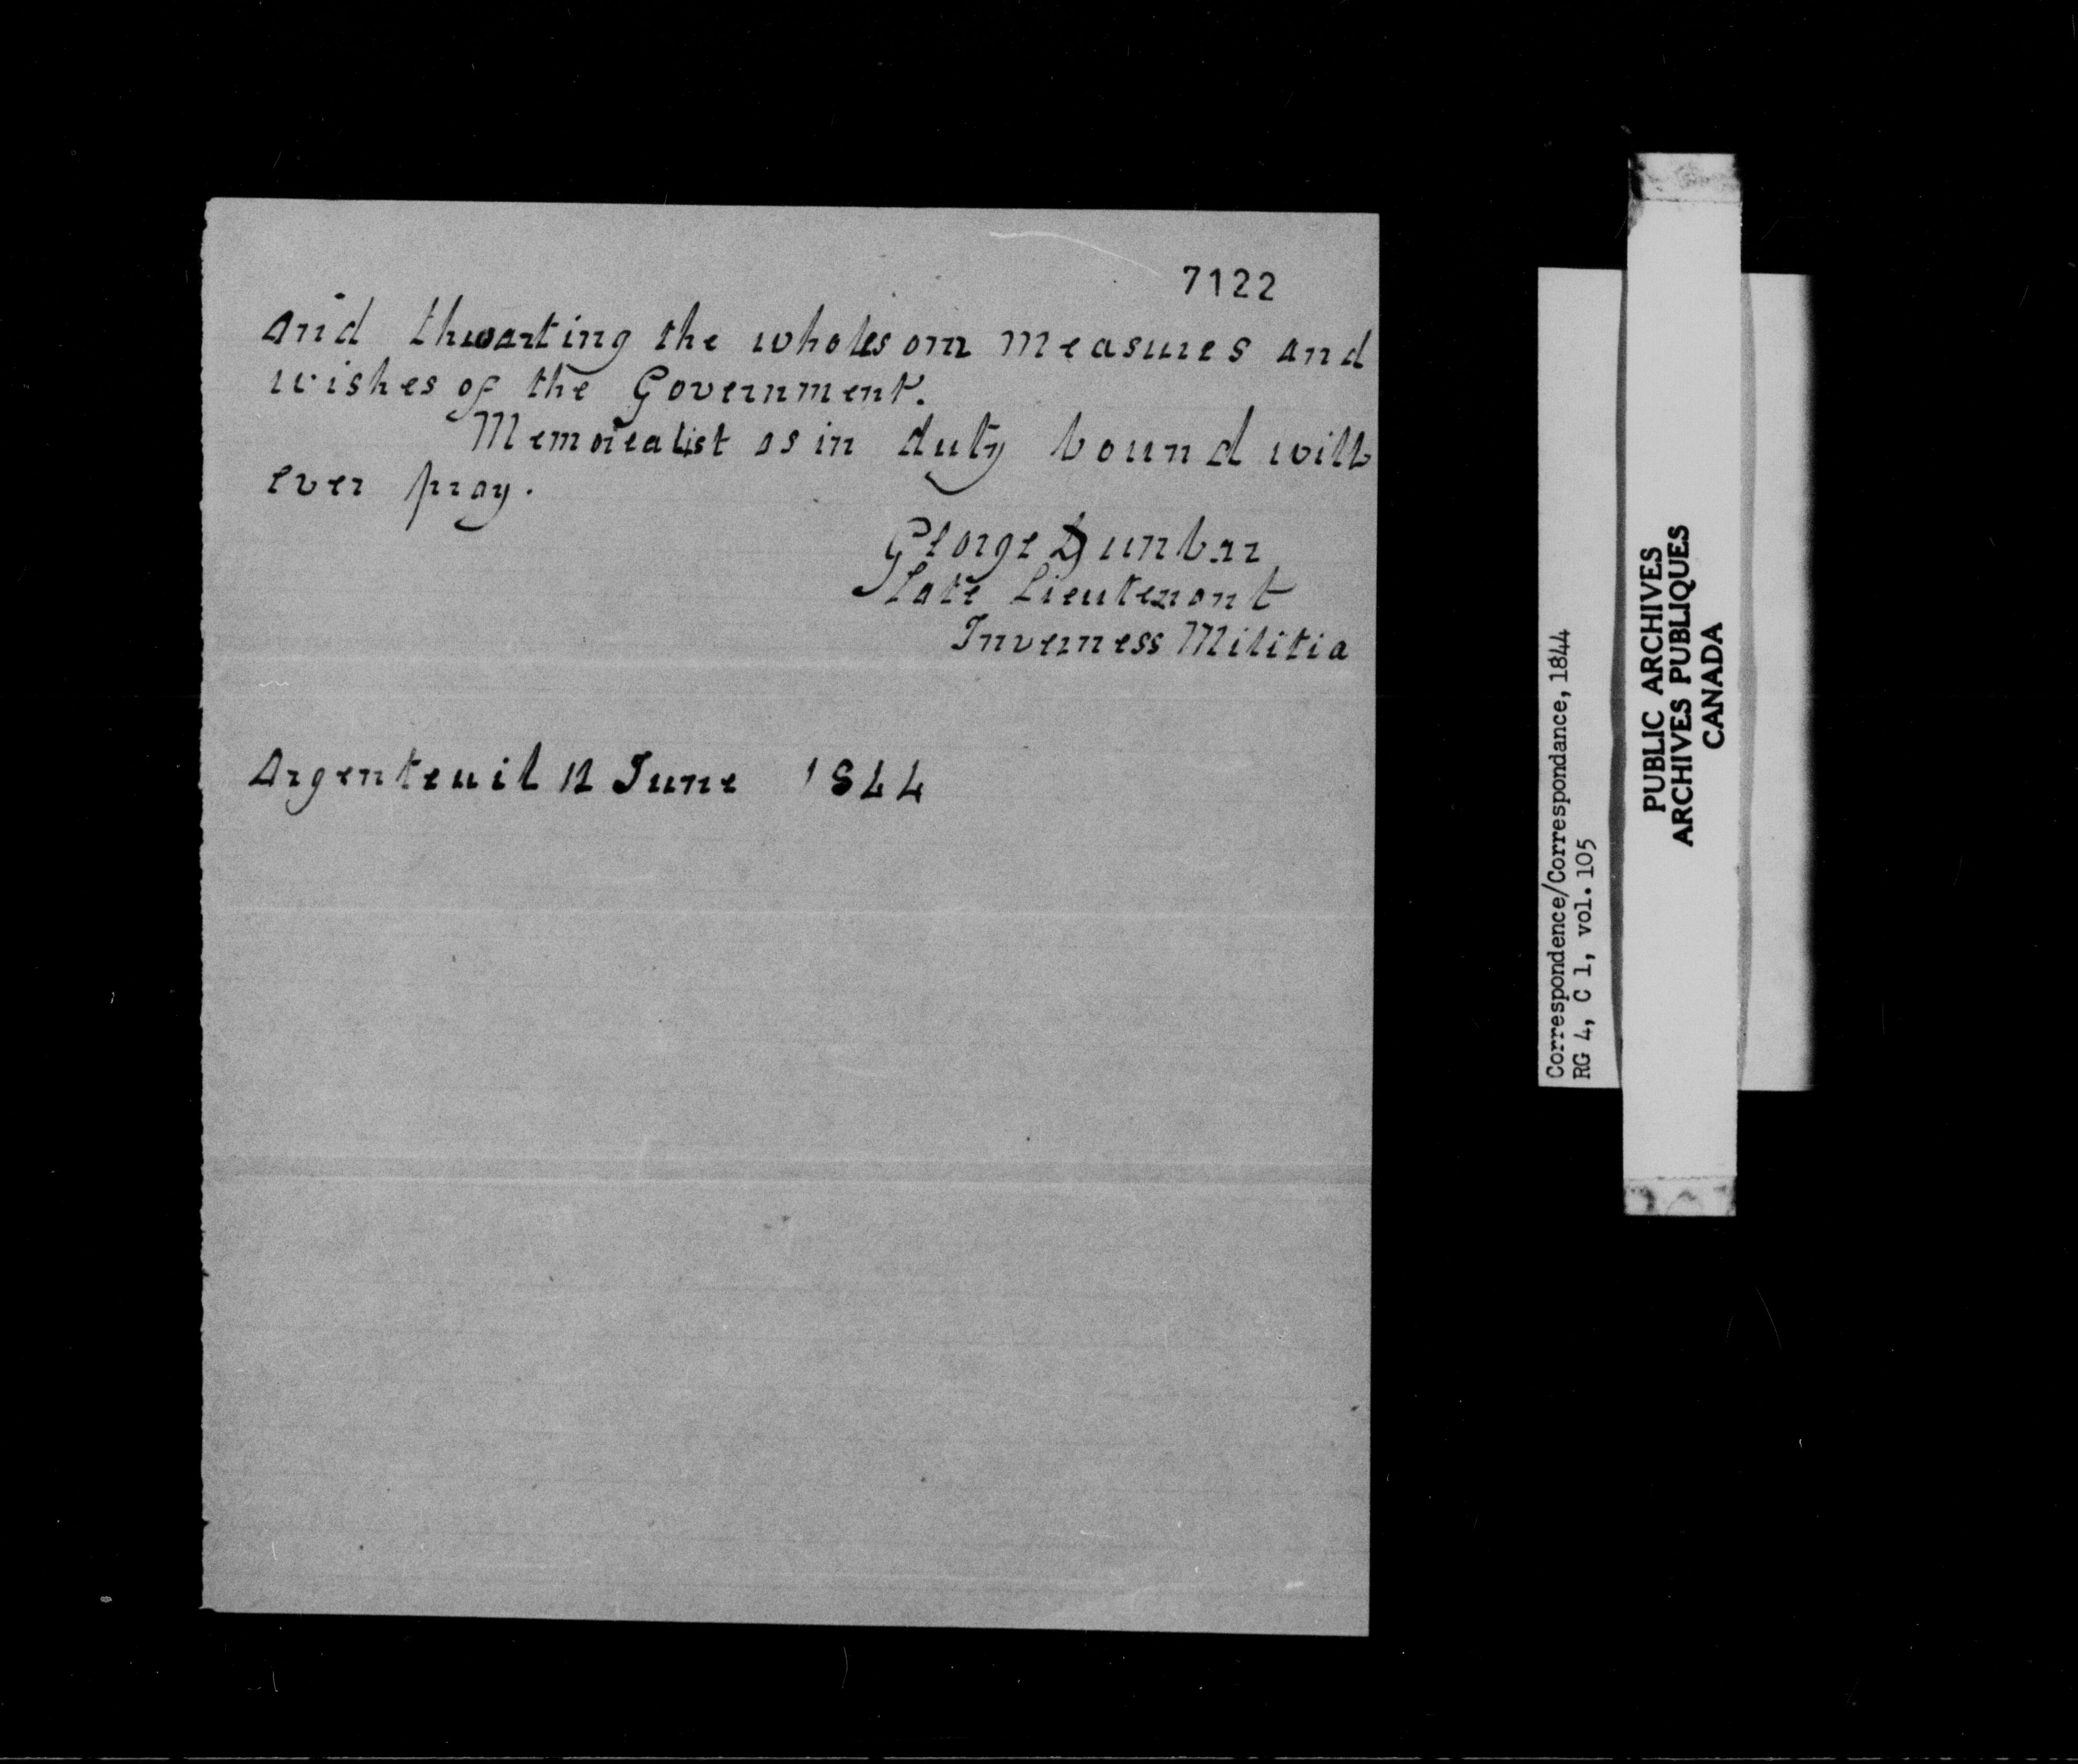 7122
and thwarting the wholesom measures and
wishes of the Government.
Memorealist as in duty bound will
ever pray.
George Dunbar
Late Lieutenant
Inverness Militia
Argenteuil 12 June 1844
Correspondence/Correspondance, 1844
RG 4, C 1, vol. 105
PUBLIC ARCHIVES
ARCHIVES PUBLIQUES
CANADA